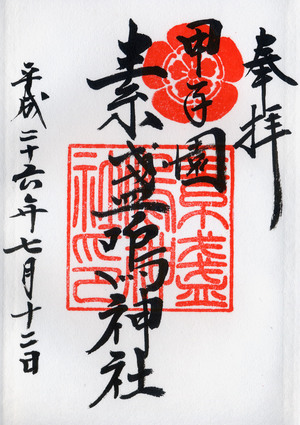 奉拝
甲子園
素盞嗚神社
平成二十六年七月十二日